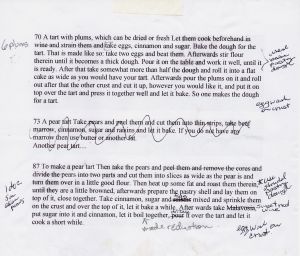 70 A tart with plums, which can be dried or fresh Let them cook beforehand in
wine and strain them and take eggs, cinnamon and sugar. Bake the dough for the
tart. That is made like so: take two eggs and beat them. Afterwards stir flour
therein until it becomes a thick dough. Pour it on the table and work it well, until it
is ready. After that take somewhat more than half the dough and roll it into a flat
cake as wide as you would have your tart. Afterwards pour the plums on it and roll
out after that the other crust and cut it up, however you would like it, and put it on
top over the tart and press it together well and let it bake. So one makes the dough
for a tart.
6 plums
eggwash
crust
73 A pear tart Take pears and peel them and cut them into thin strips, take beef
marrow, cinnamon, sugar and raisins and let it bake. If you do not have any
marrow then use butter or another fat.
Another pear tart....
87 To make a pear tart Then take the pears and peel them and remove the cores and
divide the pears into two parts and cut them into slices as wide as the pear is and
turn them over in a little good flour. Then heat up some fat and roast them therein,
until they are a little browned, afterwards prepare the pastry shell and lay them on
top of it, close together. Take cinnamon, sugar and mixed and sprinkle them
on the crust and over the top of it, let it bake a while. After wards take Malavosia,
put sugar into it and cinnamon, let it boil together, pour it over the tart and let it
cook a short while.
made reduction
eggwash on
crust